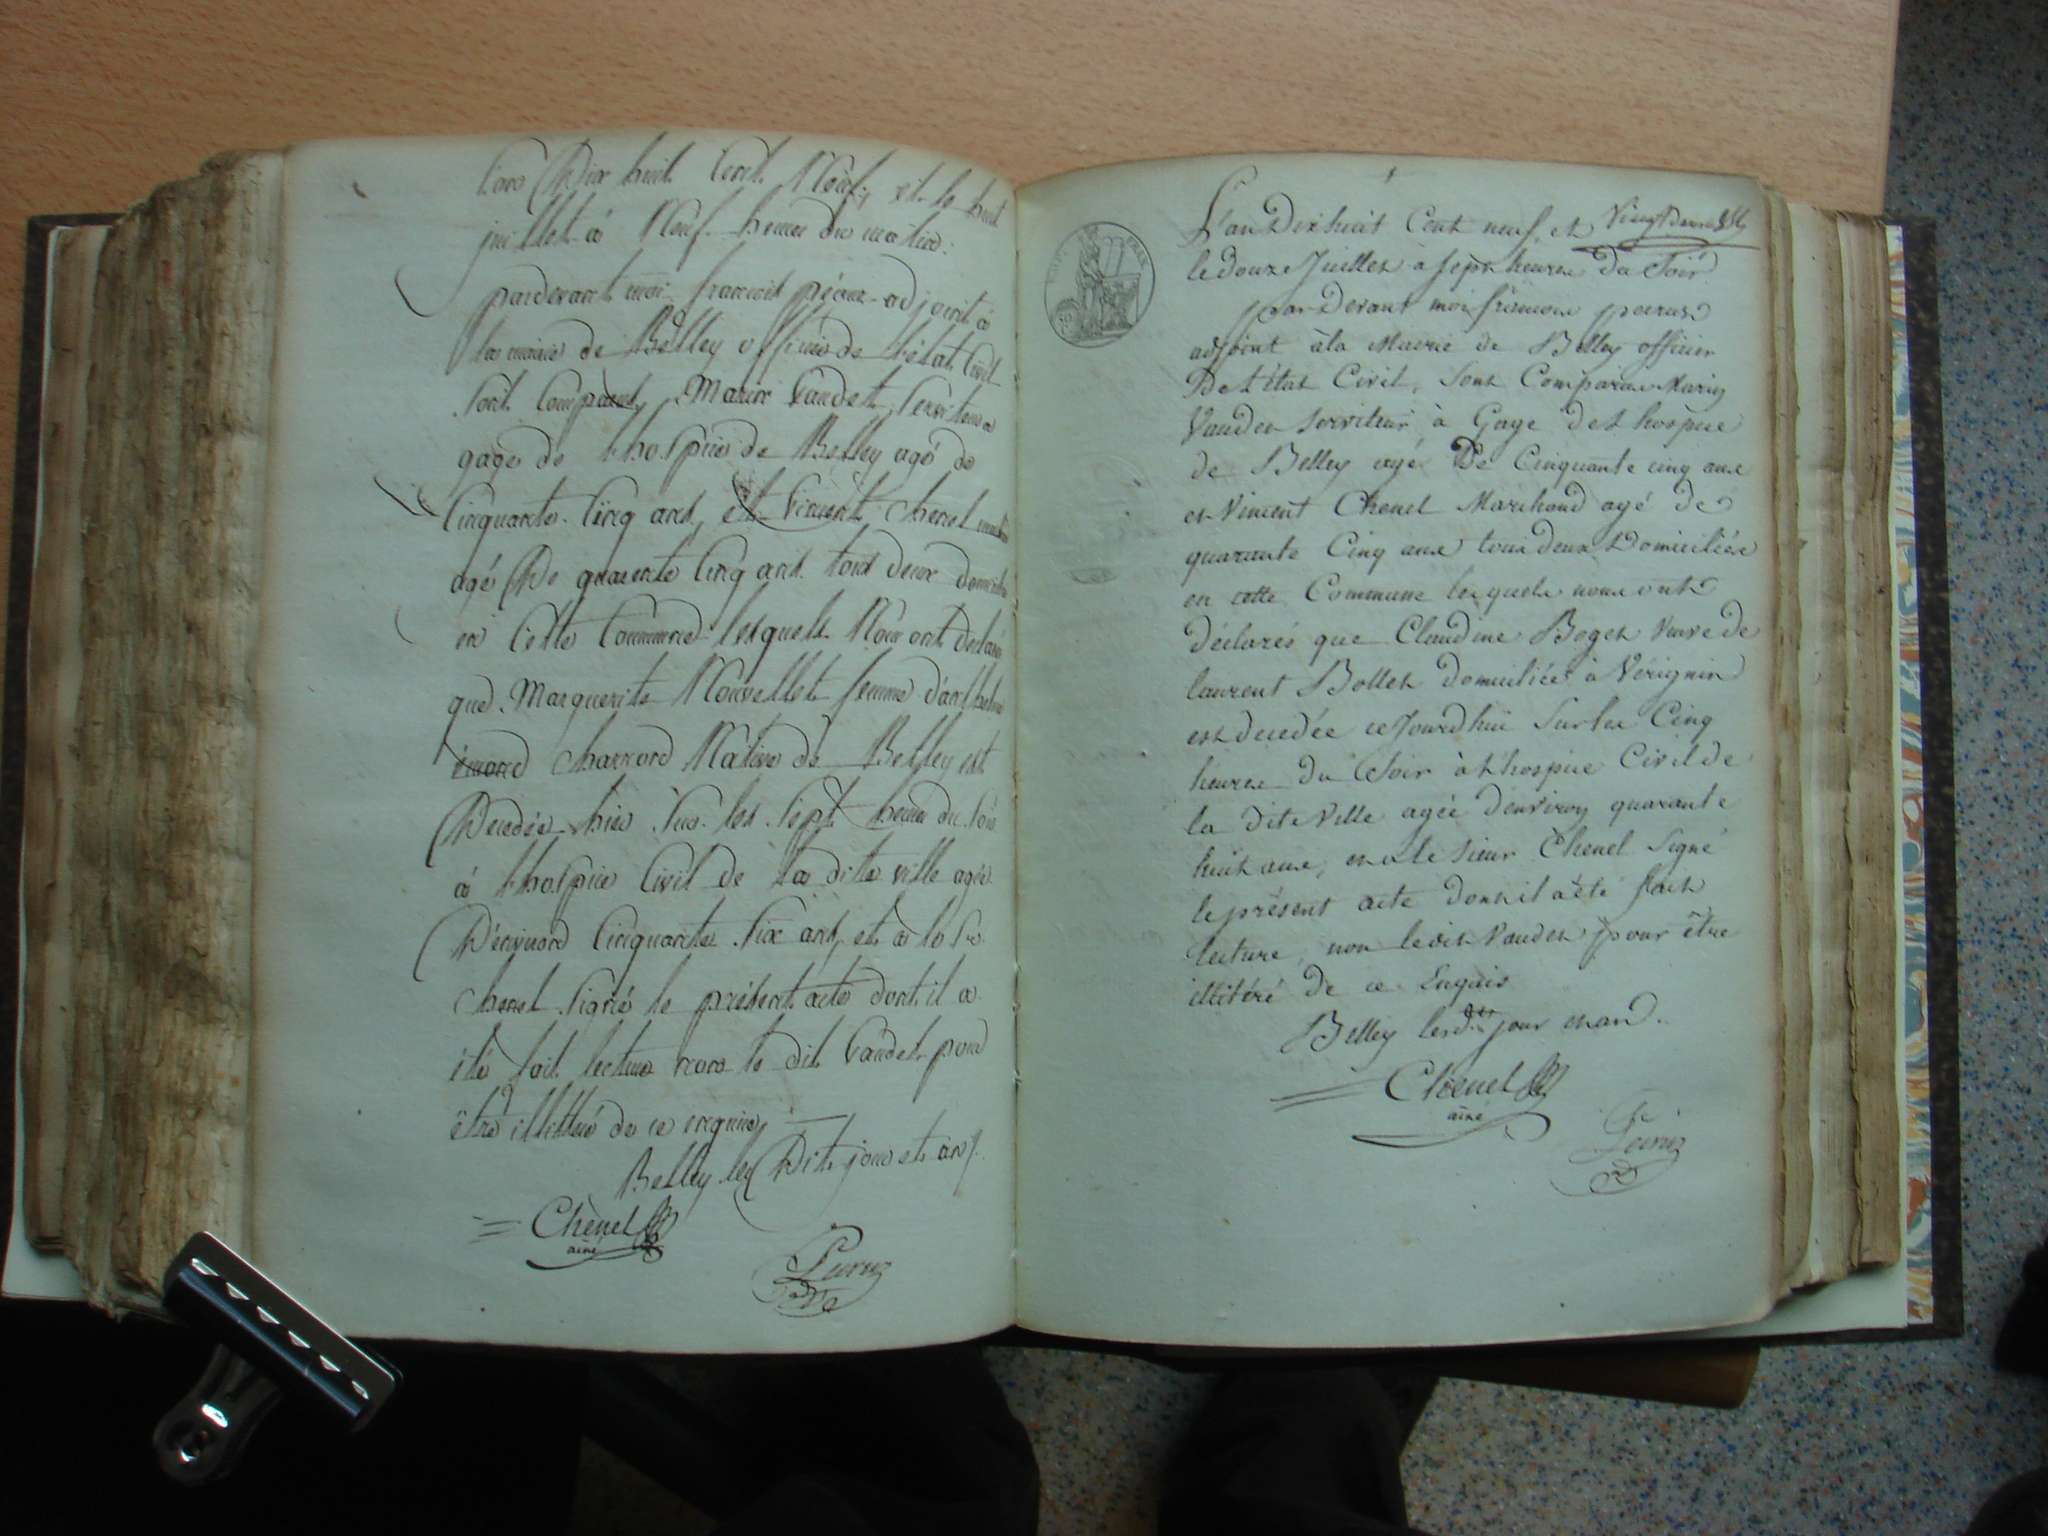 L'an Dix huit Cent Neuf, et le huit
juillet à Neuf heures du matin.
pardevant moi francois pécruz adjoint à
la mairie de Belley officier de l'état Civil
sont Comparus, Marin Vaudet, serviteur à
gage de l'hospice de Belley agé de
Cinquante Cinq ans, et Vincent Chenel
agé De quarente Cinq ans tous deux
en Cette Commune lesquels Nous ont déclaré
que Marguerite Nouvellet femme d'anthelme
charvond Native de Belley est
Décédée hier sur les sept heures du soir
à l'hospice Civil de la dite ville agée
D'environ Cinquante six ans, et a le Sr
Chenel signé le présent acte dont il a
été fait lecture non le dit Vaudet pour
être illettré de ce enquis,
Belley les Dits jour et an
Chènel
ainé
Pecruz
Vingt Deux
L'an Dix huit Cent neuf et
le douze Juillet à sept heures du Soir
par Devant moi francois pecruz
adjoint à la Mairie de Belley officier
De l'état Civil, sont Comparus Marin
Vaudet serviteur à Gage de l'hospice
de Belley agé De Cinquante cinq ans
et Vincent Chenel Marchand agé de
quarante Cinq ans tous deux Domiciliés
en cette Commune lesquels nous ont
déclarés que Claudine Boget veuve de
laurent Bollet domiciliée à Vérignin
est décedée ce Jourdhui Sur les Cinq
heures du Soir à l'hospice Civil de
la dite Ville agée d'environ quarante
huit ans, et a le sieur Chenel Signé
le présent acte dont il a été fait
lecture, non ledit Vaudet pour être
illitéré de ce Enquis
Belley les dits jour et an.
Chenel
ainé
Pecruz